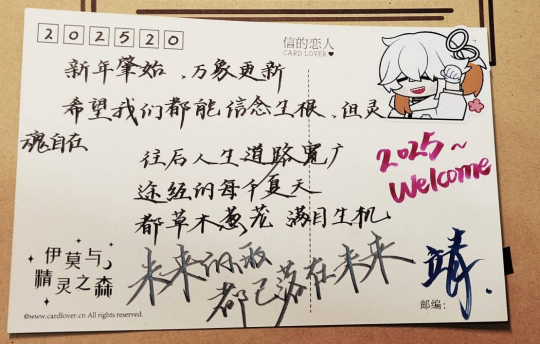 202520
信的恋人
CARD LOVER
新年肇始、万象更新
希望我们都能信念生根、但灵
魂自在
往后人生道路宽广
途经的每个夏天
都草木葱茏 满目生机
2025~
Welcome
伊莫与
精灵之森
未来的
都已落在未来
靖.
邮编:
©www.cardlover.cn All rights reserved.